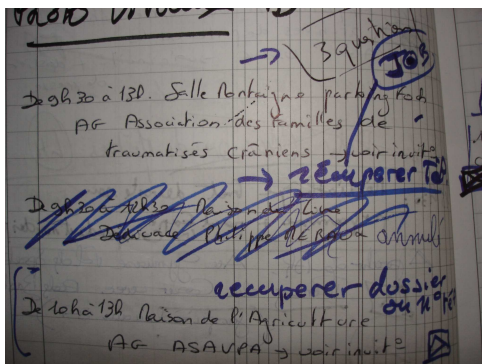 3 question
JOB
De 9h30 à 13h. Salle Montaigne parking Foch
AG Association des familles de
traumatisés crâniens → voir invit°
→ récupérer
De 9h30 à 12h30 Maison du Livre
Dédicace Philippe annulé
récupérer dossier
ou n°
De 10h à 13h Maison de l'Agriculture
AG ASAVPA → voir invit°